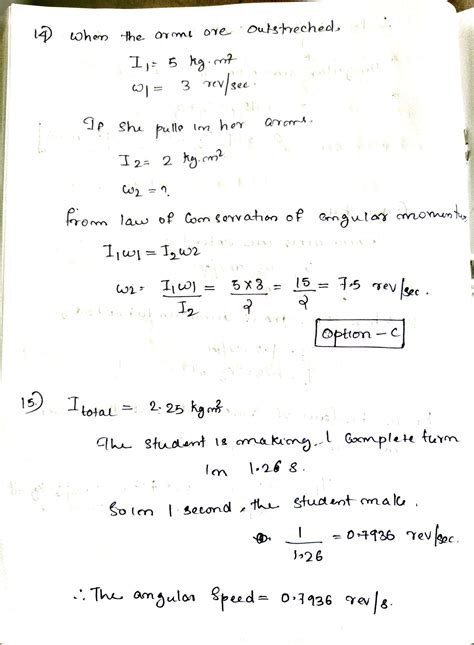 14) When the arms are outstreched,
I₁ = 5 kg.m²
ω₁ = 3 rev/sec.
If she pulls in her arms.
I₂ = 2 kg.m²
ω₂ = ?
from law of conservation of angular momentum,
I₁ω₁ = I₂ω₂
ω₂ = I₁ω₁/I₂ = 5×3/2 = 15/2 = 7.5 rev/sec.
Option - C
15) I total = 2.25 kgm².
The student is making 1 complete turn
in 1.26 s.
So in 1 second, the student make.
1/1.26 = 0.7936 rev/sec.
∴ The angular speed = 0.7936 rev/s.